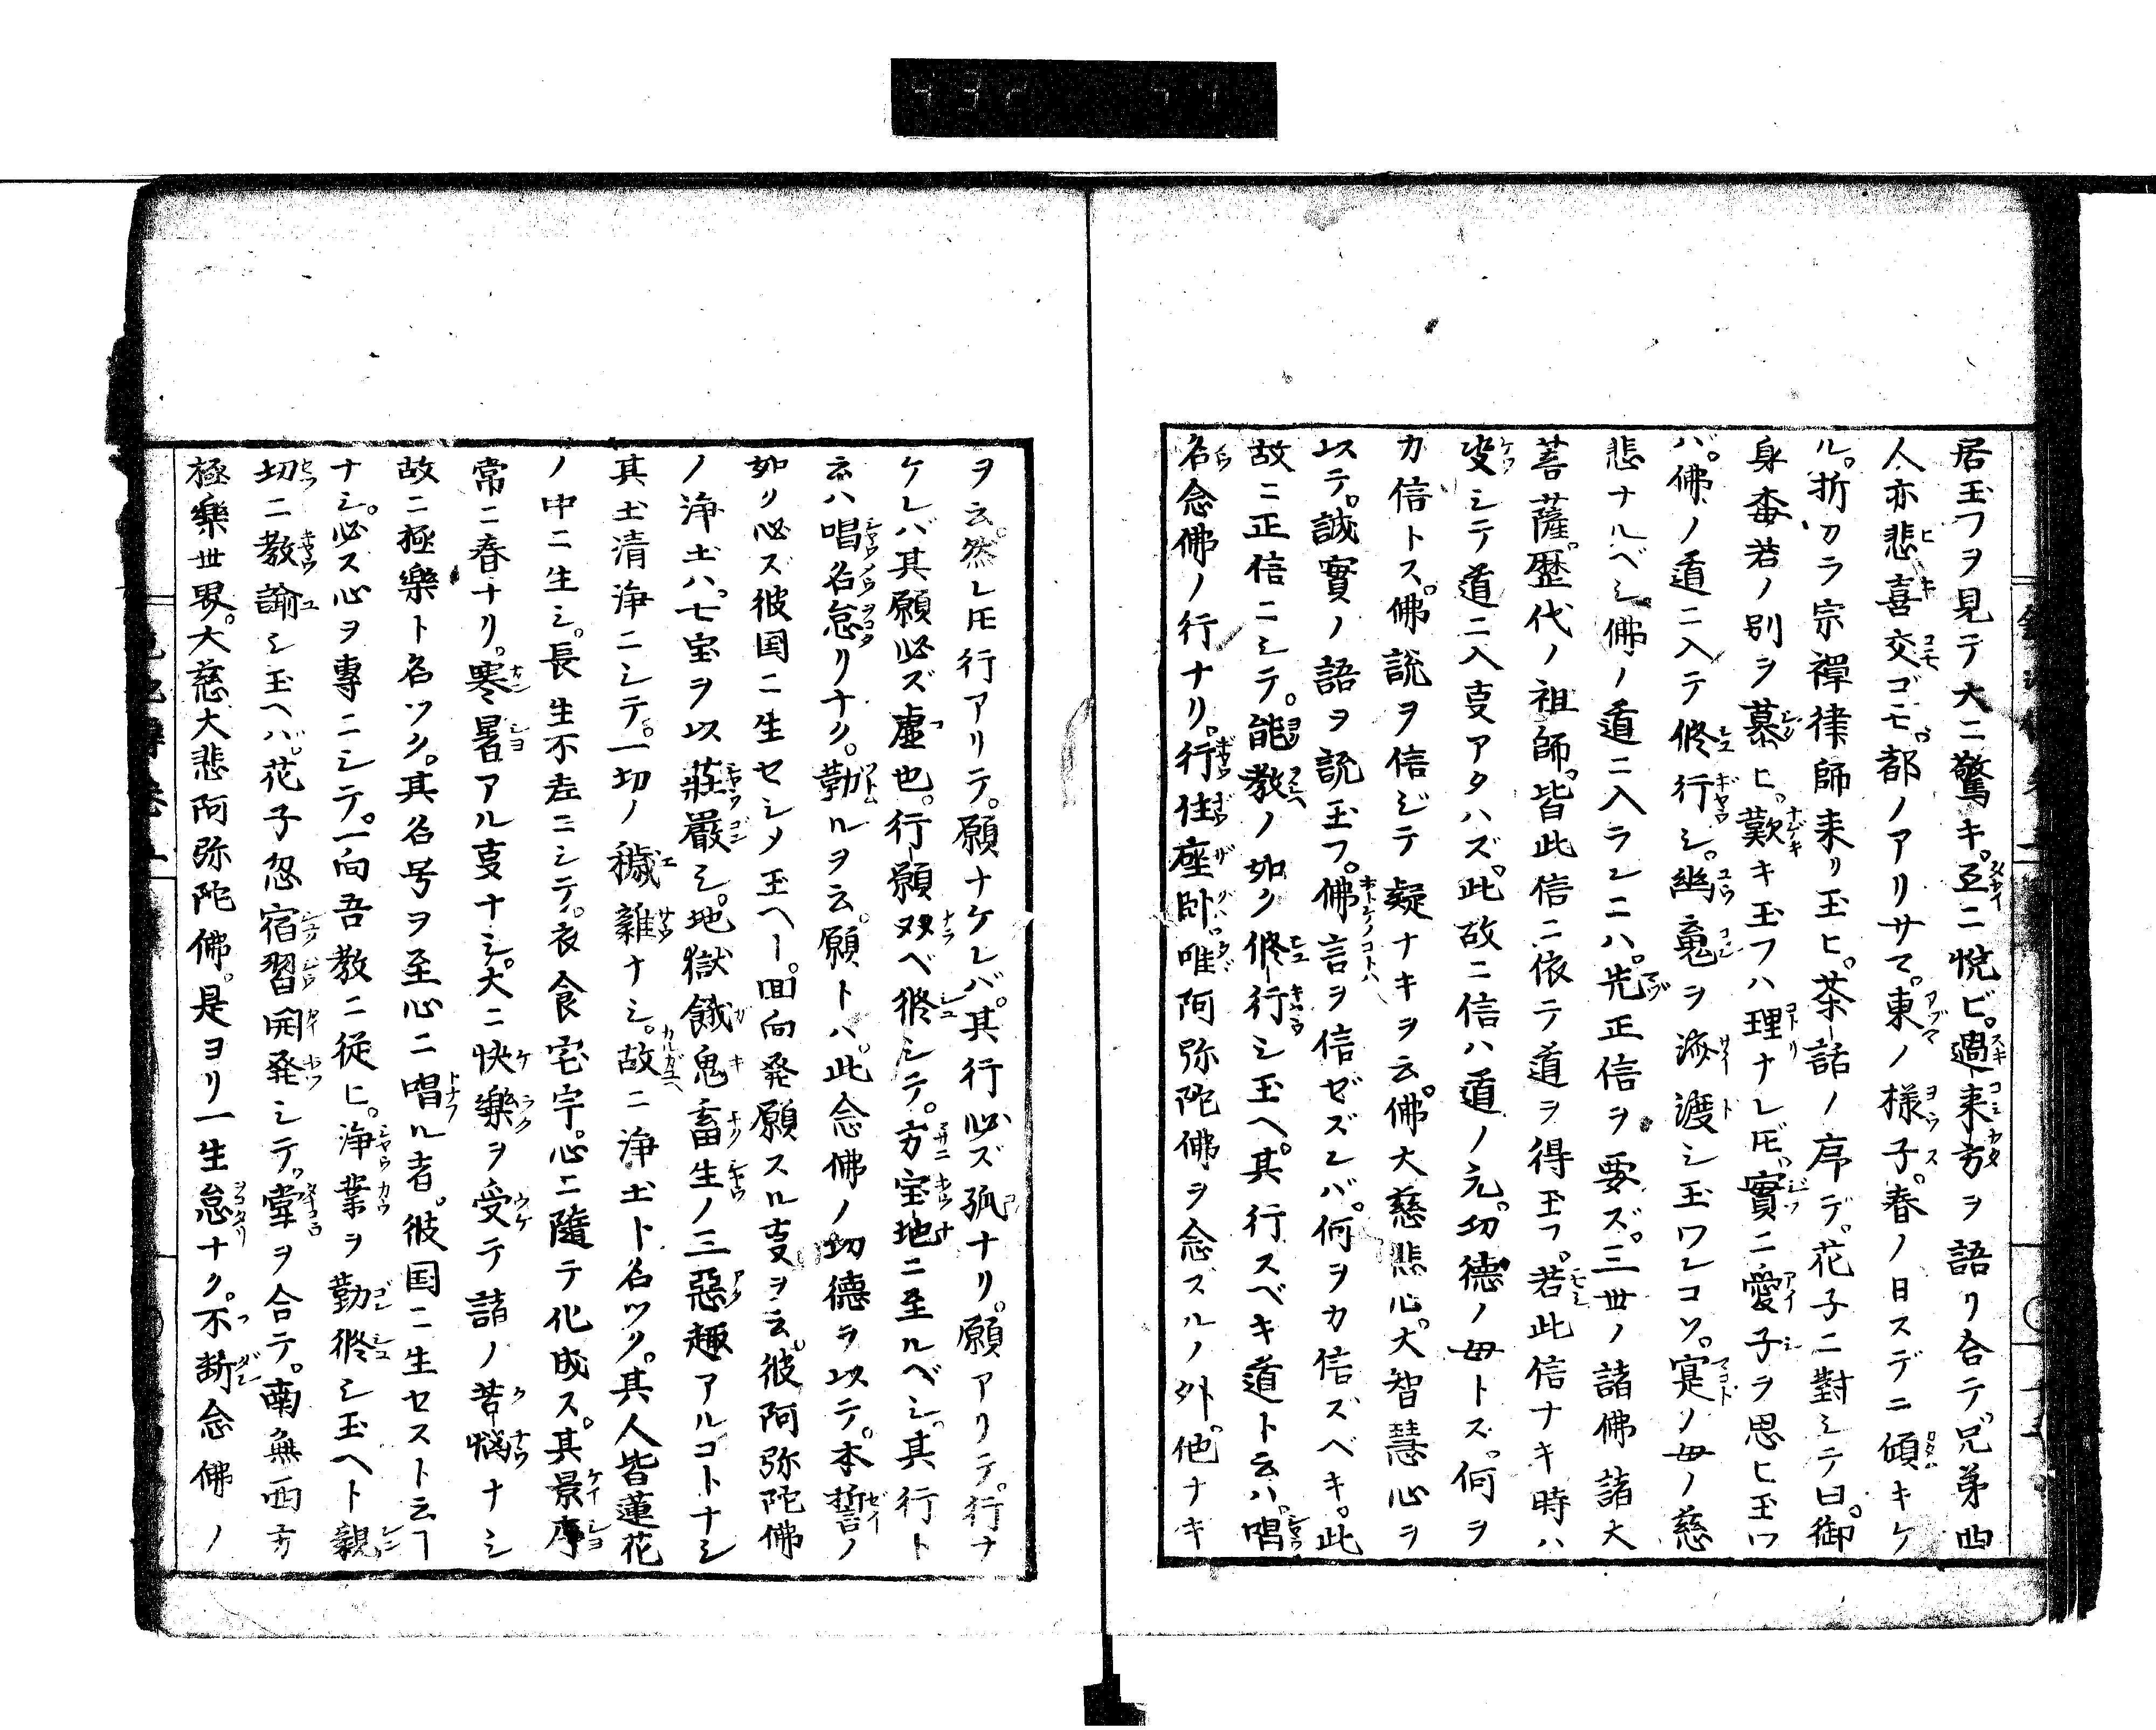 居玉フヲ見テ大ニ驚キ。互ニ悦ビ。過来方ヲ語リ合テ。兄弟四
人亦悲喜交ゴモ。都ノアリサマ。東ノ様子。春ノ日スデニ傾キケ
ル。折カラ宗禪律師来リ玉ヒ。茶話ノ序デ。花子ニ對シテ曰。御
身毒若ノ別ヲ慕ヒ。歎キ玉フハ理ナレ𪜈。實ニ愛子ヲ思ヒ玉ワ
バ。佛ノ道ニ入テ修行シ。幽䰟ヲ済渡シ玉ワンコソ。寔ノ母ノ慈
悲ナルベシ。佛ノ道ニ入ランニハ。先正信ヲ要ズ。三世ノ諸佛諸大
菩薩。歴代ノ祖師。皆此信ニ依テ道ヲ得玉フ。若此信ナキ時ハ
决シテ道ニ入叓アタハズ。此故ニ信ハ道ノ元。功德ノ母トス。何ヲ
カ信トス。佛説ヲ信ジテ疑ナキヲ云。佛大慈悲心。大智慧心ヲ
以テ。誠實ノ語ヲ説玉フ。佛言ヲ信ゼズンバ。何ヲカ信ズベキ。此
故ニ正信ニシテ。能教ノ如ク修行シ玉ヘ。其行スベキ道ト云ハ。唱
名念佛ノ行ナリ。行住座卧唯阿弥陀佛ヲ念スルノ外。他ナキ
ヲ云。然レ𪜈行アリテ。願ナケレバ。其行必ズ孤ナリ。願アリテ。行ナ
ケレバ其願必ズ虚也。行願双ベ修シテ。方宝地ニ至ルベシ。其行ト
云ハ唱名怠リナク。勤ルヲ云。願トハ。此念佛ノ功德ヲ以テ。本誓ノ
如リ必ズ彼国ニ生セシメ玉ヘト。回向発願スル叓ヲ云。彼阿弥陀佛
ノ浄土ハ。七宝ヲ以荘嚴シ。地獄餓鬼畜生ノ三惡趣アルコトナシ
其土清浄ニシテ。一切ノ穢雜ナシ。故ニ浄土ト名ツク。其人皆蓮花
ノ中ニ生シ。長生不老ニシテ。衣食宅宇。心ニ隨テ化成ス。其景序
常ニ春ナリ。寒暑アル叓ナシ。大ニ快樂ヲ受テ諸ノ苦惱ナシ
故ニ極樂ト名ツク。其名号ヲ至心ニ唱ル者。彼国ニ生セストヿ
ナシ。必ス心ヲ專ニシテ。一向吾教ニ従ヒ。浄業ヲ勤修シ玉ヘト親
切ニ教諭シ玉ヘバ。花子忽宿習開発シテ。掌ヲ合テ。南無西方
極樂世界。大慈大悲阿弥陀佛。是ヨリ一生怠ナク。不断念佛ノ